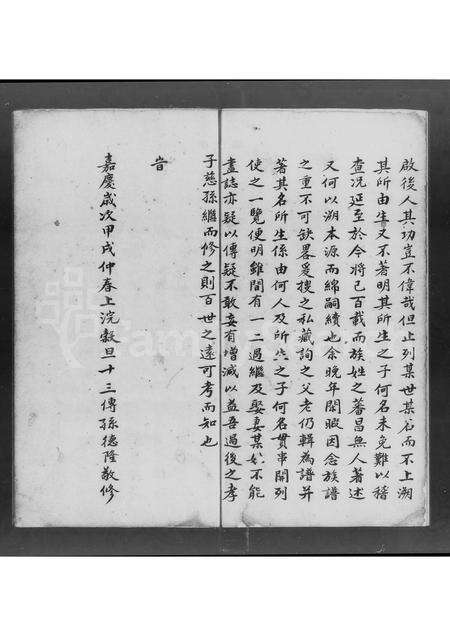 啟後人其功豈不偉哉但止列某世某名而不上溯
其所由生又不著明其所生之子何名未免難以稽
查況延至於今將已百載而族姓之蕃昌無人著述
又何以溯本源而綿嗣續也余晚年閒暇因念族譜
之重不可缺畧爰搜之私藏詢之父老仍輯為譜并
著其名所生係由何人及所生之子何名貫串開列
使之一覽便明雖間有一二過繼及娶妻某姓不能
盡誌亦疑以傳疑不敢妄有增減以益吾過後之孝
子慈孫繼而修之則百世之遠可考而知也
旹
嘉慶歲次甲戌仲春上浣穀旦十三傳孫德隆敬修